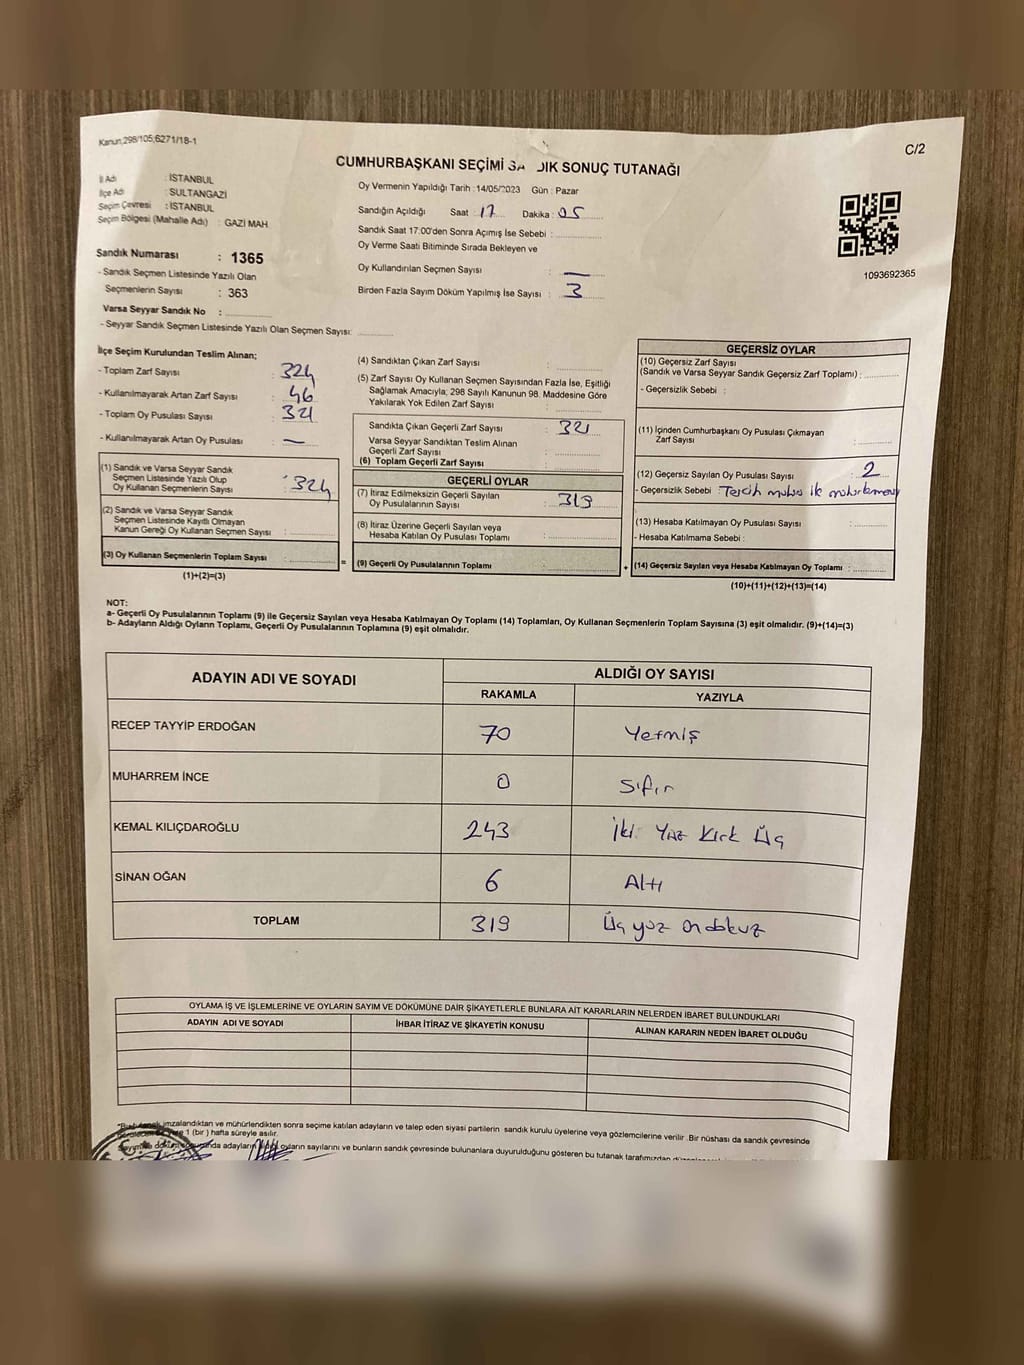 Kanun,298/105;6271/18-1
C/2
CUMHURBAŞKANI SEÇİMİ SA DIK SONUÇ TUTANAĞI
İl Adı : İSTANBUL
İlçe Adı : SULTANGAZİ
Seçim Çevresi : İSTANBUL
Seçim Bölgesi (Mahalle Adı) : GAZİ MAH
Oy Vermenin Yapıldığı Tarih : 14/05/2023 Gün : Pazar
Sandığın Açıldığı Saat : 17 Dakika : 05
Sandık Saat 17:00'den Sonra Açımış İse Sebebi :
Oy Verme Saati Bitiminde Sırada Bekleyen ve
Oy Kullandırılan Seçmen Sayısı : —
Birden Fazla Sayım Döküm Yapılmış İse Sayısı : 3
1093692365
Sandık Numarası : 1365
- Sandık Seçmen Listesinde Yazılı Olan
Seçmenlerin Sayısı : 363
Varsa Seyyar Sandık No :
- Seyyar Sandık Seçmen Listesinde Yazılı Olan Seçmen Sayısı:
İlçe Seçim Kurulundan Teslim Alınan;
- Toplam Zarf Sayısı : 324
- Kullanılmayarak Artan Zarf Sayısı : 46
- Toplam Oy Pusulası Sayısı : 321
- Kullanılmayarak Artan Oy Pusulası : —
(1) Sandık ve Varsa Seyyar Sandık
Seçmen Listesinde Yazılı Olup
Oy Kullanan Seçmenlerin Sayısı : 324
(2) Sandık ve Varsa Seyyar Sandık
Seçmen Listesinde Kayıtlı Olmayan
Kanun Gereği Oy Kullanan Seçmen Sayısı :
(3) Oy Kullanan Seçmenlerin Toplam Sayısı :
(1)+(2)=(3)
(4) Sandıktan Çıkan Zarf Sayısı :
(5) Zarf Sayısı Oy Kullanan Seçmen Sayısından Fazla İse, Eşitliği
Sağlamak Amacıyla, 298 Sayılı Kanunun 98. Maddesine Göre
Yakılarak Yok Edilen Zarf Sayısı :
Sandıkta Çıkan Geçerli Zarf Sayısı : 321
Varsa Seyyar Sandıktan Teslim Alınan
Geçerli Zarf Sayısı :
(6) Toplam Geçerli Zarf Sayısı :
GEÇERLİ OYLAR
(7) İtiraz Edilmeksizin Geçerli Sayılan
Oy Pusulalarının Sayısı : 319
(8) İtiraz Üzerine Geçerli Sayılan veya
Hesaba Katılan Oy Pusulası Toplamı :
= (9) Geçerli Oy Pusulalarının Toplamı :
GEÇERSİZ OYLAR
(10) Geçersiz Zarf Sayısı
(Sandık ve Varsa Seyyar Sandık Geçersiz Zarf Toplamı) :
- Geçersizlik Sebebi :
(11) İçinden Cumhurbaşkanı Oy Pusulası Çıkmayan
Zarf Sayısı :
(12) Geçersiz Sayılan Oy Pusulası Sayısı : 2
- Geçersizlik Sebebi : Tercih
(13) Hesaba Katılmayan Oy Pusulası Sayısı :
- Hesaba Katılmama Sebebi :
+ (14) Geçersiz Sayılan veya Hesaba Katılmayan Oy Toplamı :
(10)+(11)+(12)+(13)=(14)
NOT:
a- Geçerli Oy Pusulalarının Toplamı (9) ile Geçersiz Sayılan veya Hesaba Katılmayan Oy Toplamı (14) Toplamları, Oy Kullanan Seçmenlerin Toplam Sayısına (3) eşit olmalıdır. (9)+(14)=(3)
b- Adayların Aldığı Oyların Toplamı, Geçerli Oy Pusulalarının Toplamına (9) eşit olmalıdır.
ADAYIN ADI VE SOYADI
ALDIĞI OY SAYISI
RAKAMLA YAZIYLA
RECEP TAYYİP ERDOĞAN 70 Yetmiş
MUHARREM İNCE 0 Sıfır
KEMAL KILIÇDAROĞLU 243 İki Yüz Kırk Üç
SİNAN OĞAN 6 Altı
TOPLAM 319 Üç yüz ondokuz
OYLAMA İŞ VE İŞLEMLERİNE VE OYLARIN SAYIM VE DÖKÜMÜNE DAİR ŞİKAYETLERLE BUNLARA AİT KARARLARIN NELERDEN İBARET BULUNDUKLARI
ADAYIN ADI VE SOYADI İHBAR İTİRAZ VE ŞİKAYETİN KONUSU ALINAN KARARIN NEDEN İBARET OLDUĞU
imzalandıktan ve mühürlendikten sonra seçime katılan adayların ve talep eden siyasi partilerin sandık kurulu üyelerine veya gözlemcilerine verilir .Bir nüshası da sandık çevresinde
1 (bir ) hafta süreyle asılır.
adayların oyların sayılarını ve bunların sandık çevresinde bulunanlara duyurulduğunu gösteren bu tutanak tarafımızdan